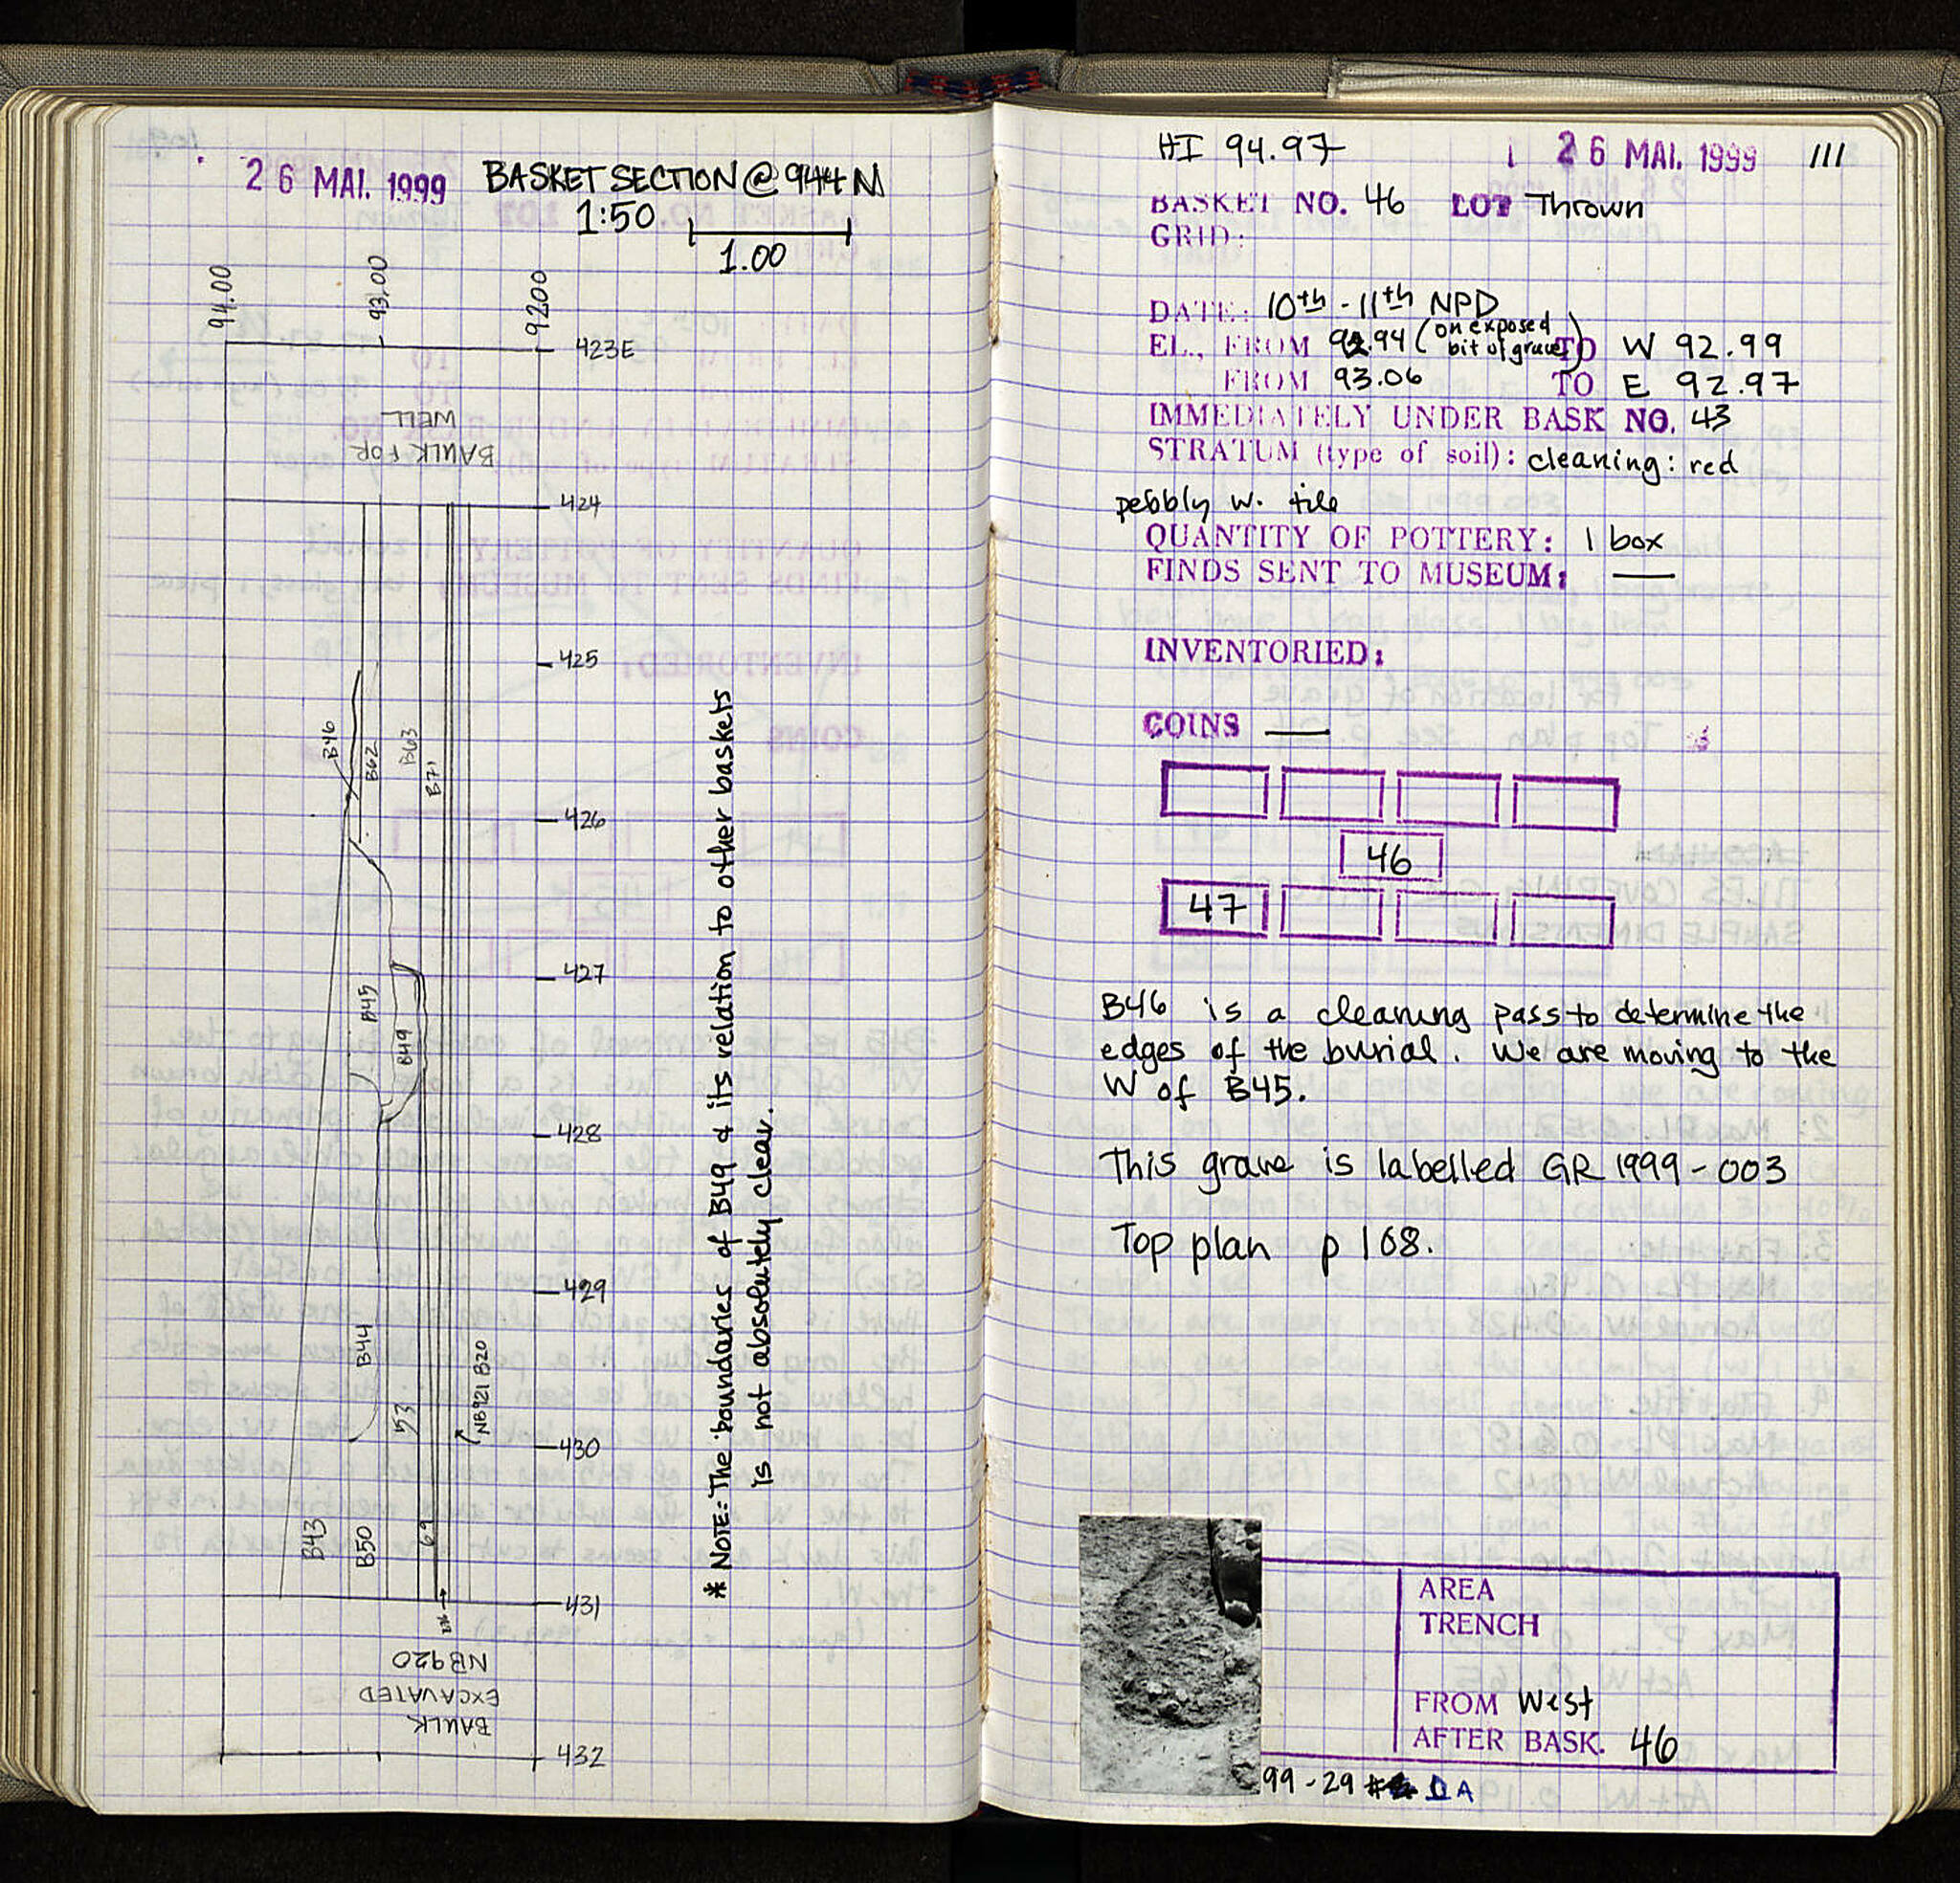 26 MAI. 1999 BASKET SECTION @ 944 N
1:50
1.00
94.00
93.00
9200
423E
BAULK FOR
WELL
424
425
B46
B62
B63
B71
426
427
B45
B49
428
429
B44
53
NB921 B20
430
B43
B50
69
431
BAULK
EXCAVATED
NB920
432
* NOTE: The boundaries of B49 & its relation to other baskets
is not absolutely clear.
HI 94.97
26 MAI. 1999 111
BASKET NO. 46 LOT Thrown
GRID:
DATE: 10th - 11th NPD
EL., FROM 92.94 (on exposed bit of grave) TO W 92.99
FROM 93.06 TO E 92.97
IMMEDIATELY UNDER BASK NO. 43
STRATUM (type of soil): cleaning: red
pebbly w. tile
QUANTITY OF POTTERY: 1 box
FINDS SENT TO MUSEUM: —
INVENTORIED:
COINS —
46
47
B46 is a cleaning pass to determine the
edges of the burial. We are moving to the
W of B45.
This grave is labelled GR 1999-003
Top plan p 168.
AREA
TRENCH
FROM West
AFTER BASK. 46
99-29 A